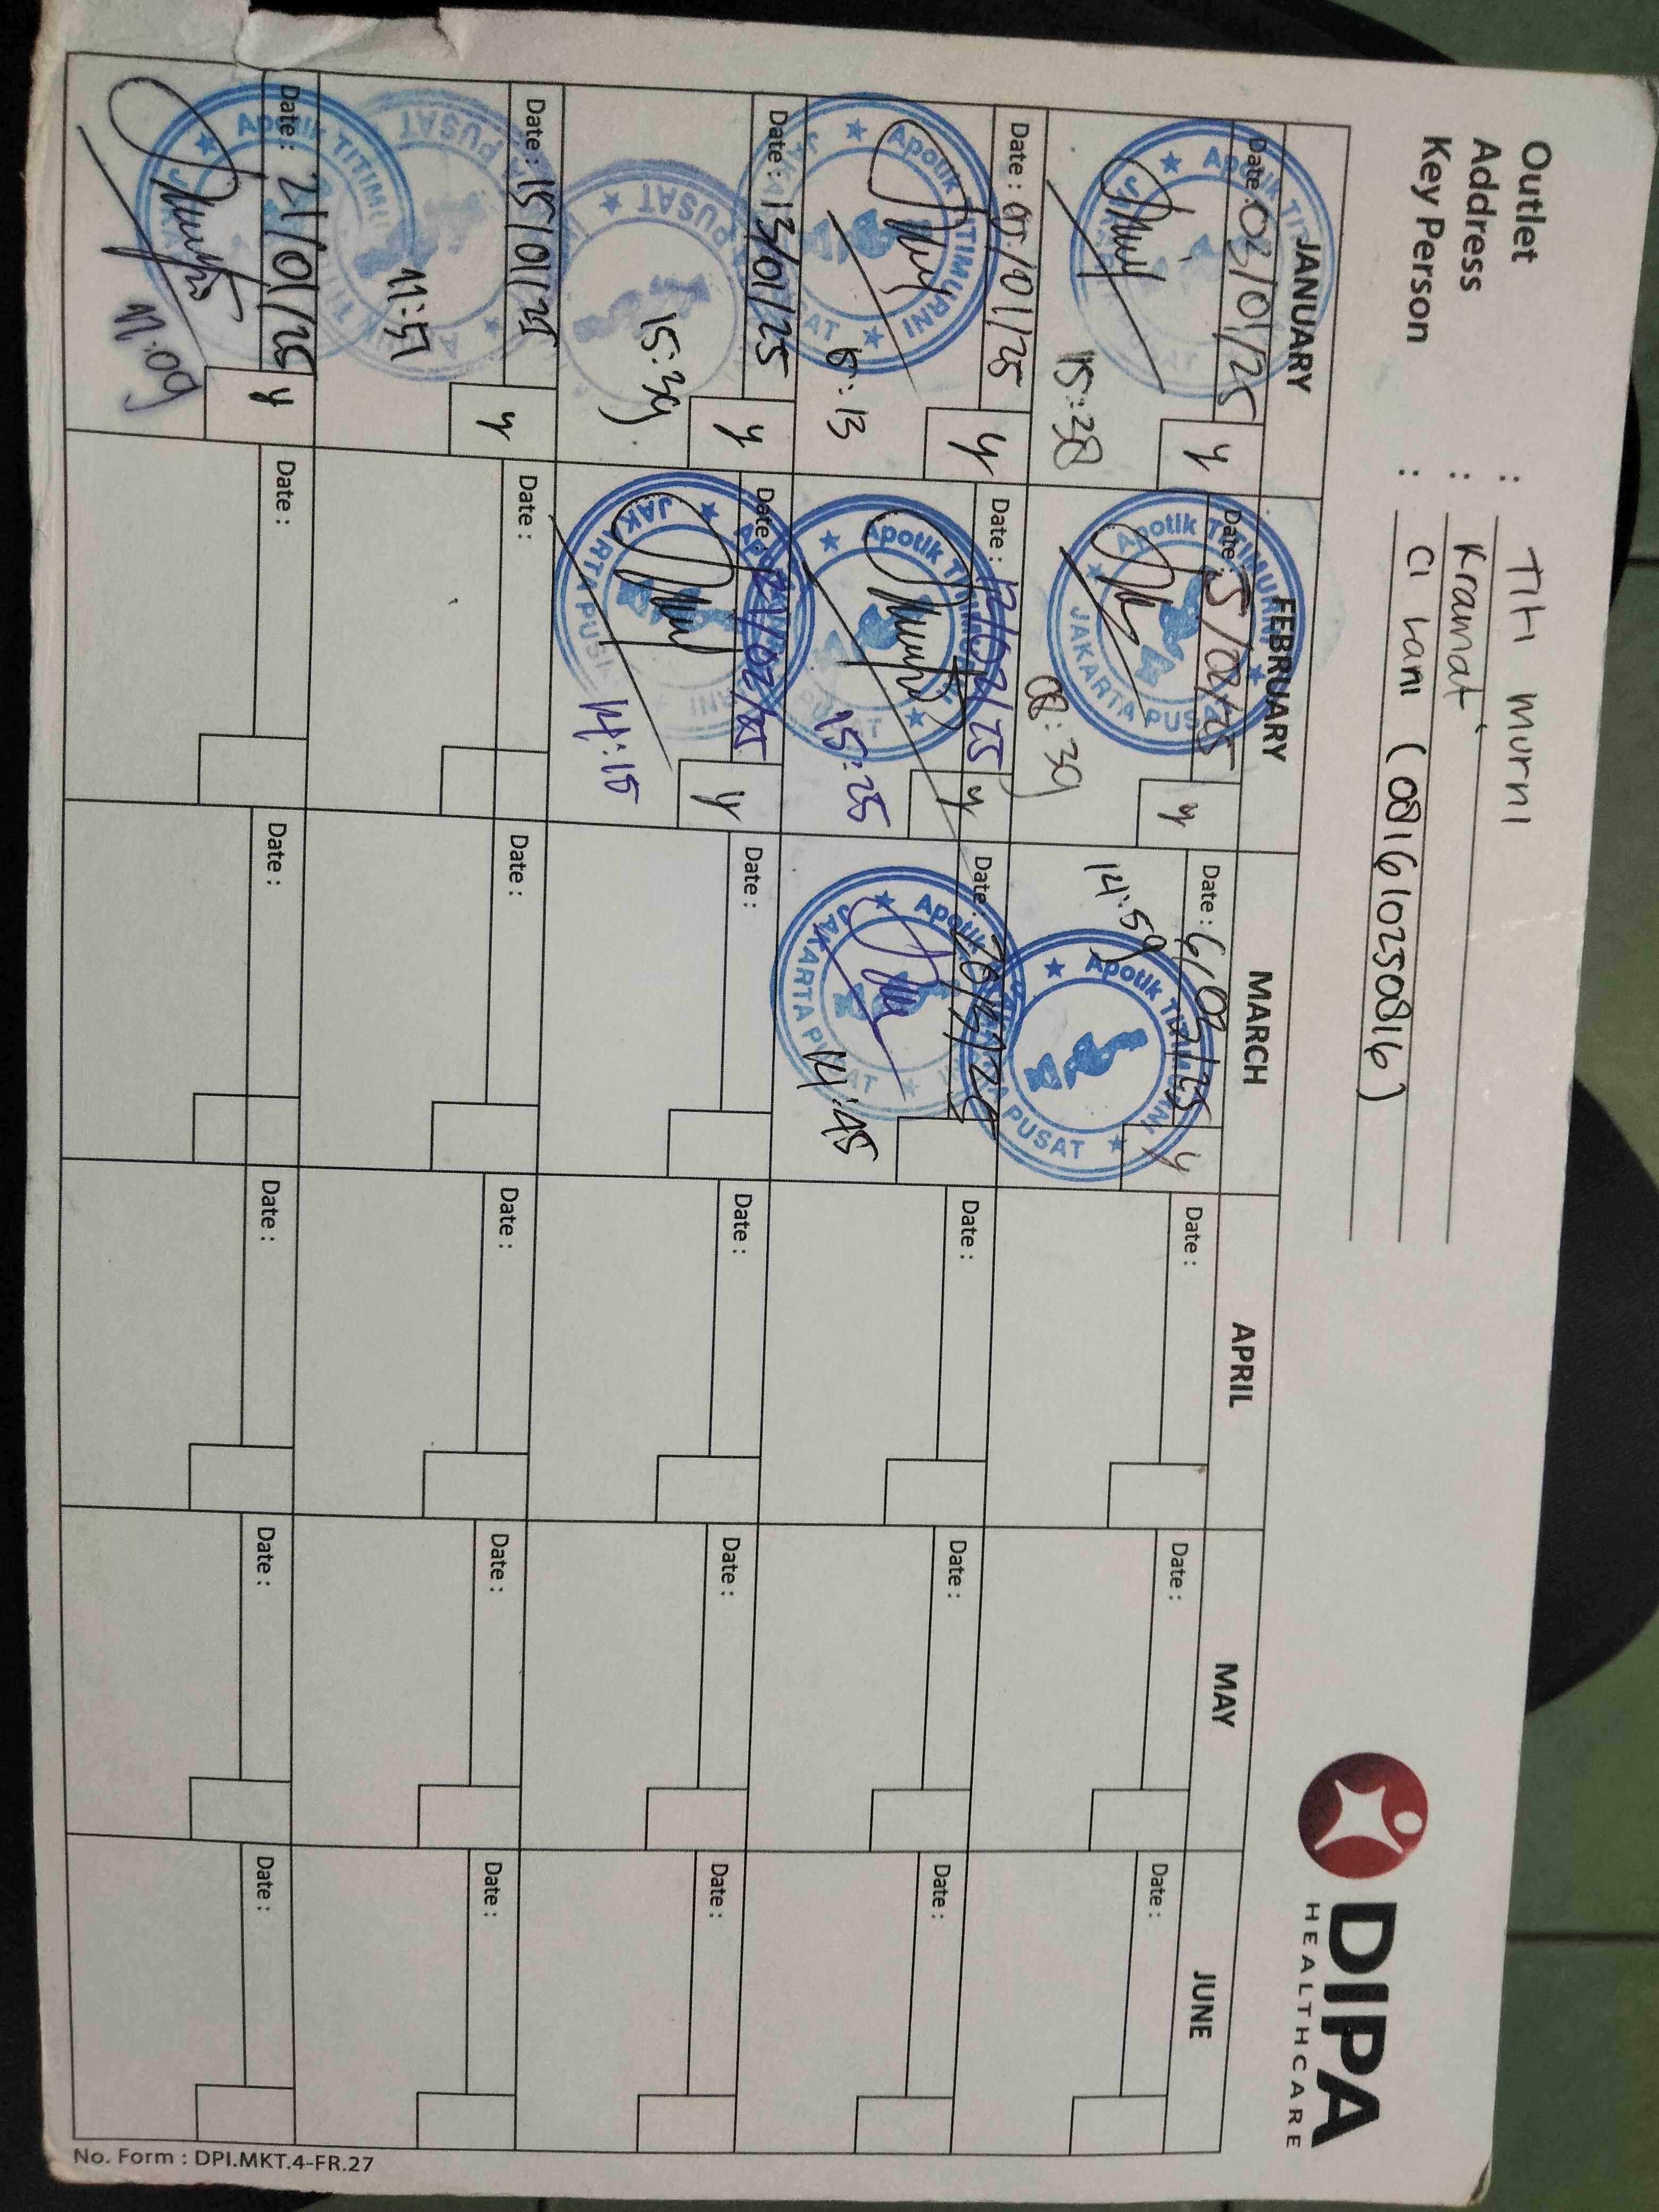 Outlet : Titi murni
Address : Kramat
Key Person : Ci Lani (081610250816)
DIPA
HEALTHCARE
JANUARY FEBRUARY MARCH APRIL MAY JUNE
Date : 03/01/25 y Date : 5/02/25 y Date : 6/03/25 y Date : Date : Date :
15:38 08:39 14:59
Apotik TITIMURNI JAKARTA PUSAT
Date : /01/25 y Date : 12/02/25 y Date : Date : Date : Date :
15:13 15:25 14:45
Apotik TITIMURNI JAKARTA PUSAT
Date : 13/01/25 y Date : 21/02/25 y Date : Date : Date : Date :
15:39 14:15
Date : 15/01/25 y Date : Date : Date : Date : Date :
11:57
Date : 21/01/25 y Date : Date : Date : Date : Date :
11:09
No. Form : DPI.MKT.4-FR.27